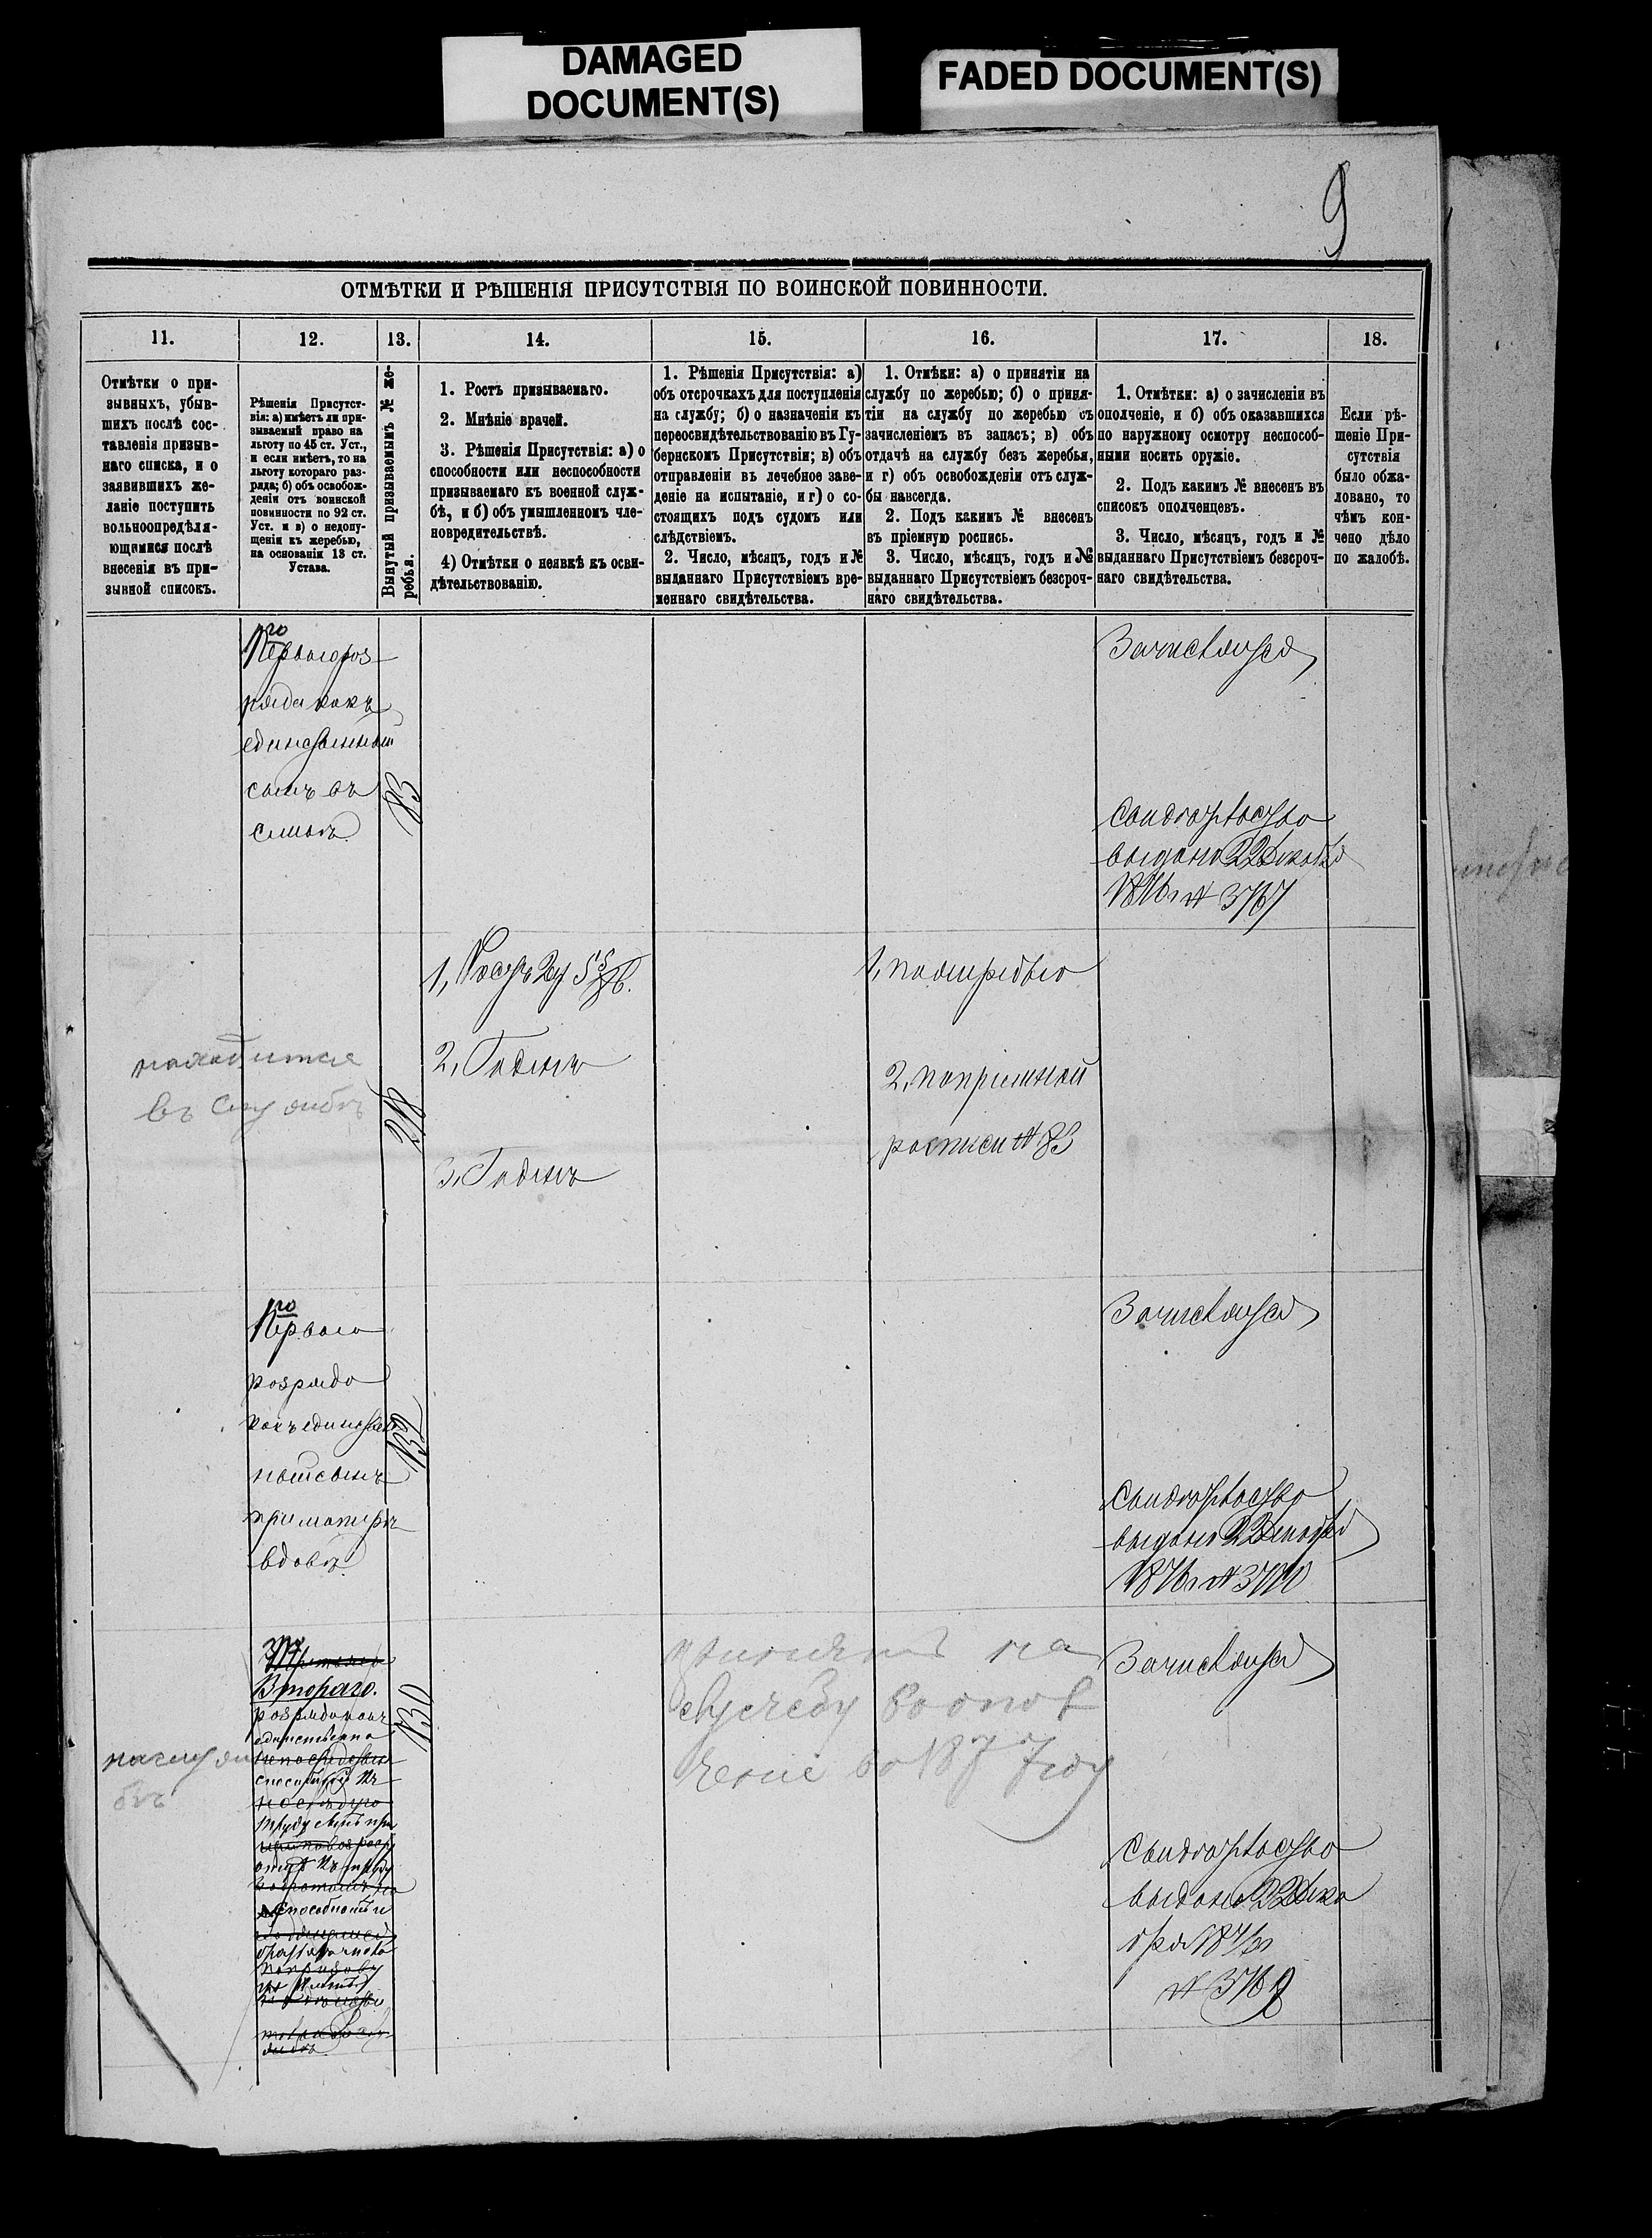 DAMAGED
DOCUMENT(S)
FADED DOCUMENT(S)
9
ОТМѢТКИ И РѢШЕНІЯ ПРИСУТСТВІЯ ПО ВОИНСКОЙ ПОВИННОСТИ.
11.
12.
13.
14.
15.
16.
17.
18.
Отмѣтки о при-
зывныхъ, убыв-
шихъ послѣ сос-
тавленія призыв-
наго списка, и о
заявившихъ же-
ланіе поступить
вольноопредѣля-
ющимися послѣ
внесенія въ при-
зывной списокъ.
Рѣшенія Присутст-
вія: а) имѣетъ ли при-
зываемый право на
льготу по 45 ст. Уст.,
и если имѣетъ, то на
льготу котораго раз-
ряда; б) объ освобож-
деніи отъ воинской
повинности по 92 ст.
Уст. и в) о недопу-
щеніи къ жеребью,
на основаніи 13 ст.
Устава.
Вынутый призываемымъ № же-
ребья.
1. Ростъ призываемаго.
2. Мнѣніе врачей.
3. Рѣшенія Присутствія: а) о
способности или неспособности
призываемаго къ военной служ-
бѣ, и б) объ умышленномъ чле-
новредительствѣ.
4) Отмѣтки о неявкѣ къ осви-
дѣтельствованію.
1. Рѣшенія Присутствія: а)
объ отсрочкахъ для поступленія
на службу; б) о назначеніи къ
переосвидѣтельствованію въ Гу-
бернскомъ Присутствіи; в) объ
отправленіи въ лечебное заве-
деніе на испытаніе, и г) о со-
стоящихъ подъ судомъ или
слѣдствіемъ.
2. Число, мѣсяцъ, годъ и №
выданнаго Присутствіемъ вре-
меннаго свидѣтельства.
1. Отмѣки: а) о принятіи на
службу по жеребью; б) о приня-
тіи на службу по жеребью съ
зачисленіемъ въ запасъ; в) объ
отдачѣ на службу безъ жеребья,
и г) объ освобожденіи отъ служ-
бы навсегда.
2. Подъ какимъ № внесенъ
въ пріемную роспись.
3. Число, мѣсяцъ, годъ и №
выданнаго Присутствіемъ безсроч-
наго свидѣтельства.
1. Отмѣтки: а) о зачисленіи въ
ополченіе, и б) объ оказавшихся
по наружному осмотру неспособ-
ными носить оружіе.
2. Подъ какимъ № внесенъ въ
списокъ ополченцевъ.
3. Число, мѣсяцъ, годъ и №
выданнаго Присутствіемъ безсроч-
наго свидѣтельства.
Если рѣ-
шеніе При-
сутствія
было обжа-
ловано, то
чѣмъ кон-
чено дѣло
по жалобѣ.
1го
Перваго раз-
ряда какъ
единственный
сынъ въ
семьѣ
83
Зачисляется
Свидѣтельство
выдано 22 Декабря
1876 г № 3767
находится
въ службѣ
218
1, Ростъ 2 ар
2, Годенъ
3, Годенъ
1, по жеребью
2, по пріемной
росписи № 83
1го
Перваго
разряда
какъ единствен
ный сынъ
при матери
вдовѣ
132
Зачисляется
Свидѣтельство
выдано 22 Декабря
1876 г № 3770
на служ
бѣ
Третьяго
Втораго.
разряда какъ
единственно
способный къ
труду сынъ при
отцѣ къ труду
130
принятъ на
службу
1877 году
Зачисляется
Свидѣтельство
выдано 22 Дека
бря 1876 г
№ 3769